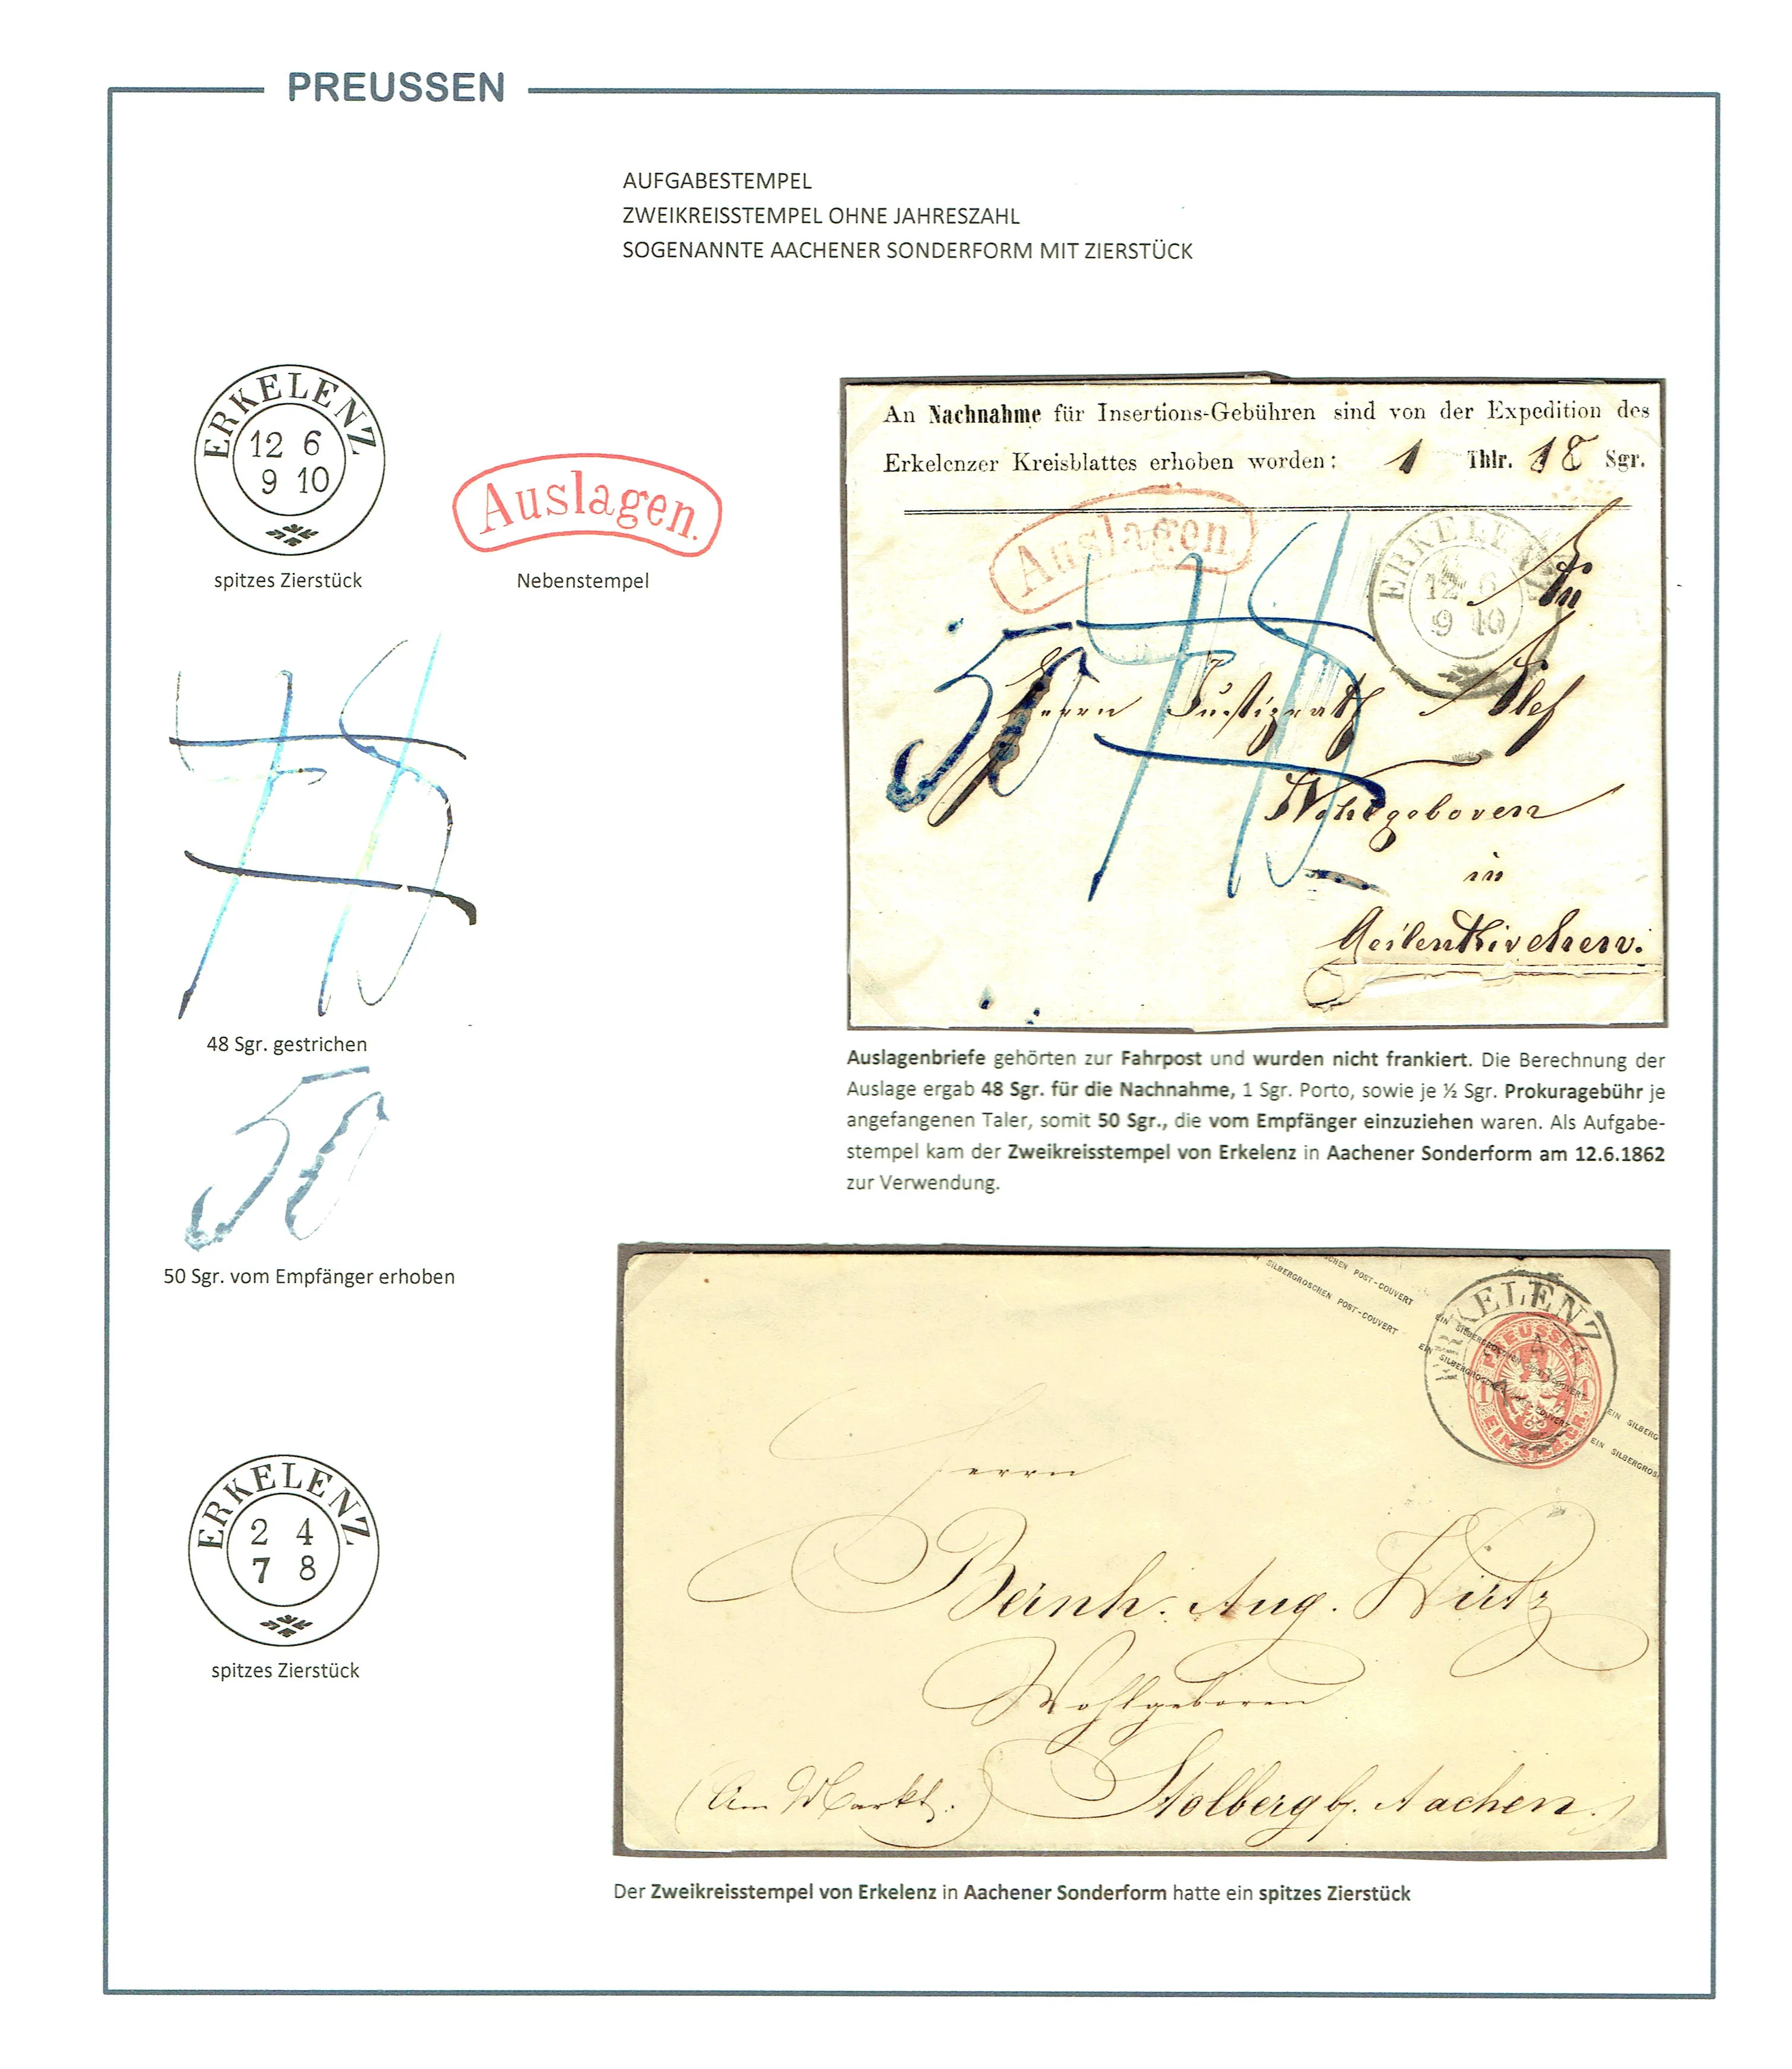 PREUSSEN
AUFGABESTEMPEL
ZWEIKREISSTEMPEL OHNE JAHRESZAHL
SOGENANNTE AACHENER SONDERFORM MIT ZIERSTÜCK
ERKELENZ
12 6
9 10
spitzes Zierstück
Auslagen.
Nebenstempel
48 Sgr. gestrichen
50
50 Sgr. vom Empfänger erhoben
An Nachnahme für Insertions-Gebühren sind von der Expedition des
Erkelenzer Kreisblattes erhoben worden: 1 Thlr. 18 Sgr.
Auslagen.
ERKELENZ
12 6
9 10
An
50 48
Herrn Justizrath Alef
Wohlgeboren
in
Geilenkirchen.
Auslagenbriefe gehörten zur Fahrpost und wurden nicht frankiert. Die Berechnung der
Auslage ergab 48 Sgr. für die Nachnahme, 1 Sgr. Porto, sowie je ½ Sgr. Prokuragebühr je
angefangenen Taler, somit 50 Sgr., die vom Empfänger einzuziehen waren. Als Aufgabe-
stempel kam der Zweikreisstempel von Erkelenz in Aachener Sonderform am 12.6.1862
zur Verwendung.
SCHEN POST-COUVERT
SILBERGROSCHEN POST-COUVERT
EIN SILBERGROSCHEN POST-COUVERT
EIN SILBERGROSCHEN POST-COUVERT
EIN SILBERG
EIN SILBERGROS
ERKELENZ
PREUSSEN
1 1
EIN SILB. GR.
Herrn
Bernh. Aug. Wirtz
Wohlgeboren
(Am Markt.) Stolberg b. Aachen.
ERKELENZ
2 4
7 8
spitzes Zierstück
Der Zweikreisstempel von Erkelenz in Aachener Sonderform hatte ein spitzes Zierstück